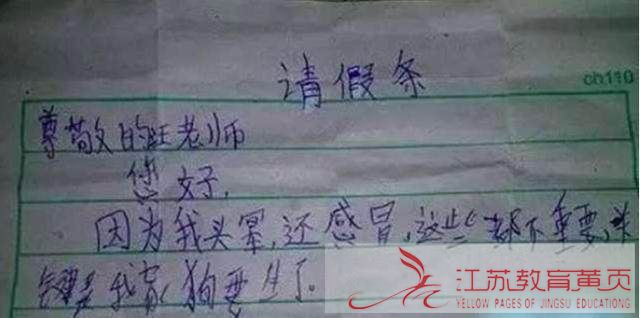 请假条
ch110
尊敬的旺老师
您好,
因为我头晕,还感冒,这些都不重要,关
键是我家狗要生了.
江苏教育黄页
YELLOW PAGES OF JINGSU EDUCATIONG